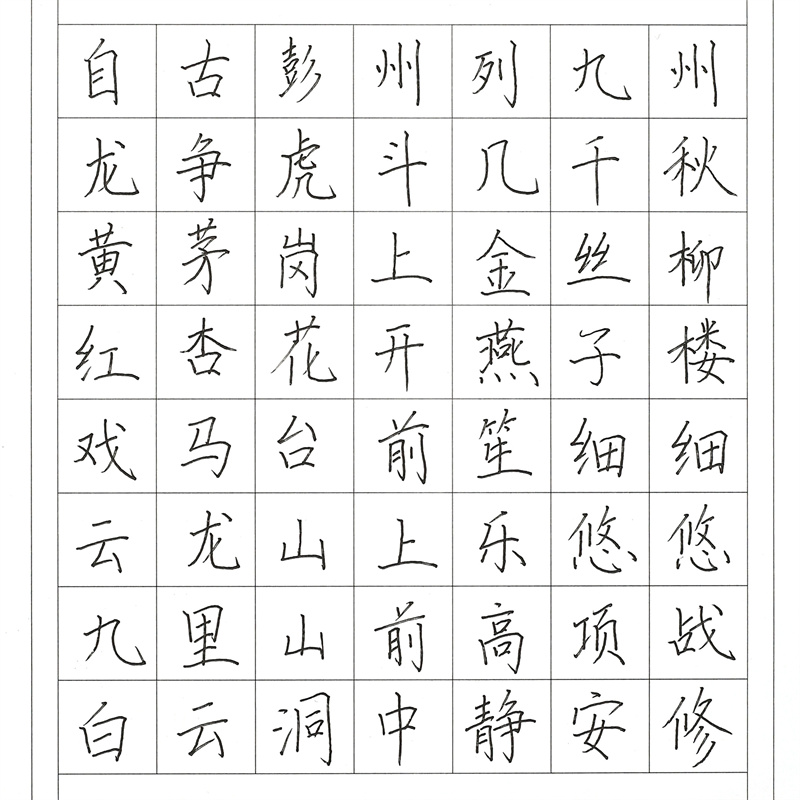 自古彭州列九州
龙争虎斗几千秋
黄茅岗上金丝柳
红杏花开燕子楼
戏马台前笙细细
云龙山上乐悠悠
九里山前高项战
白云洞中静安修